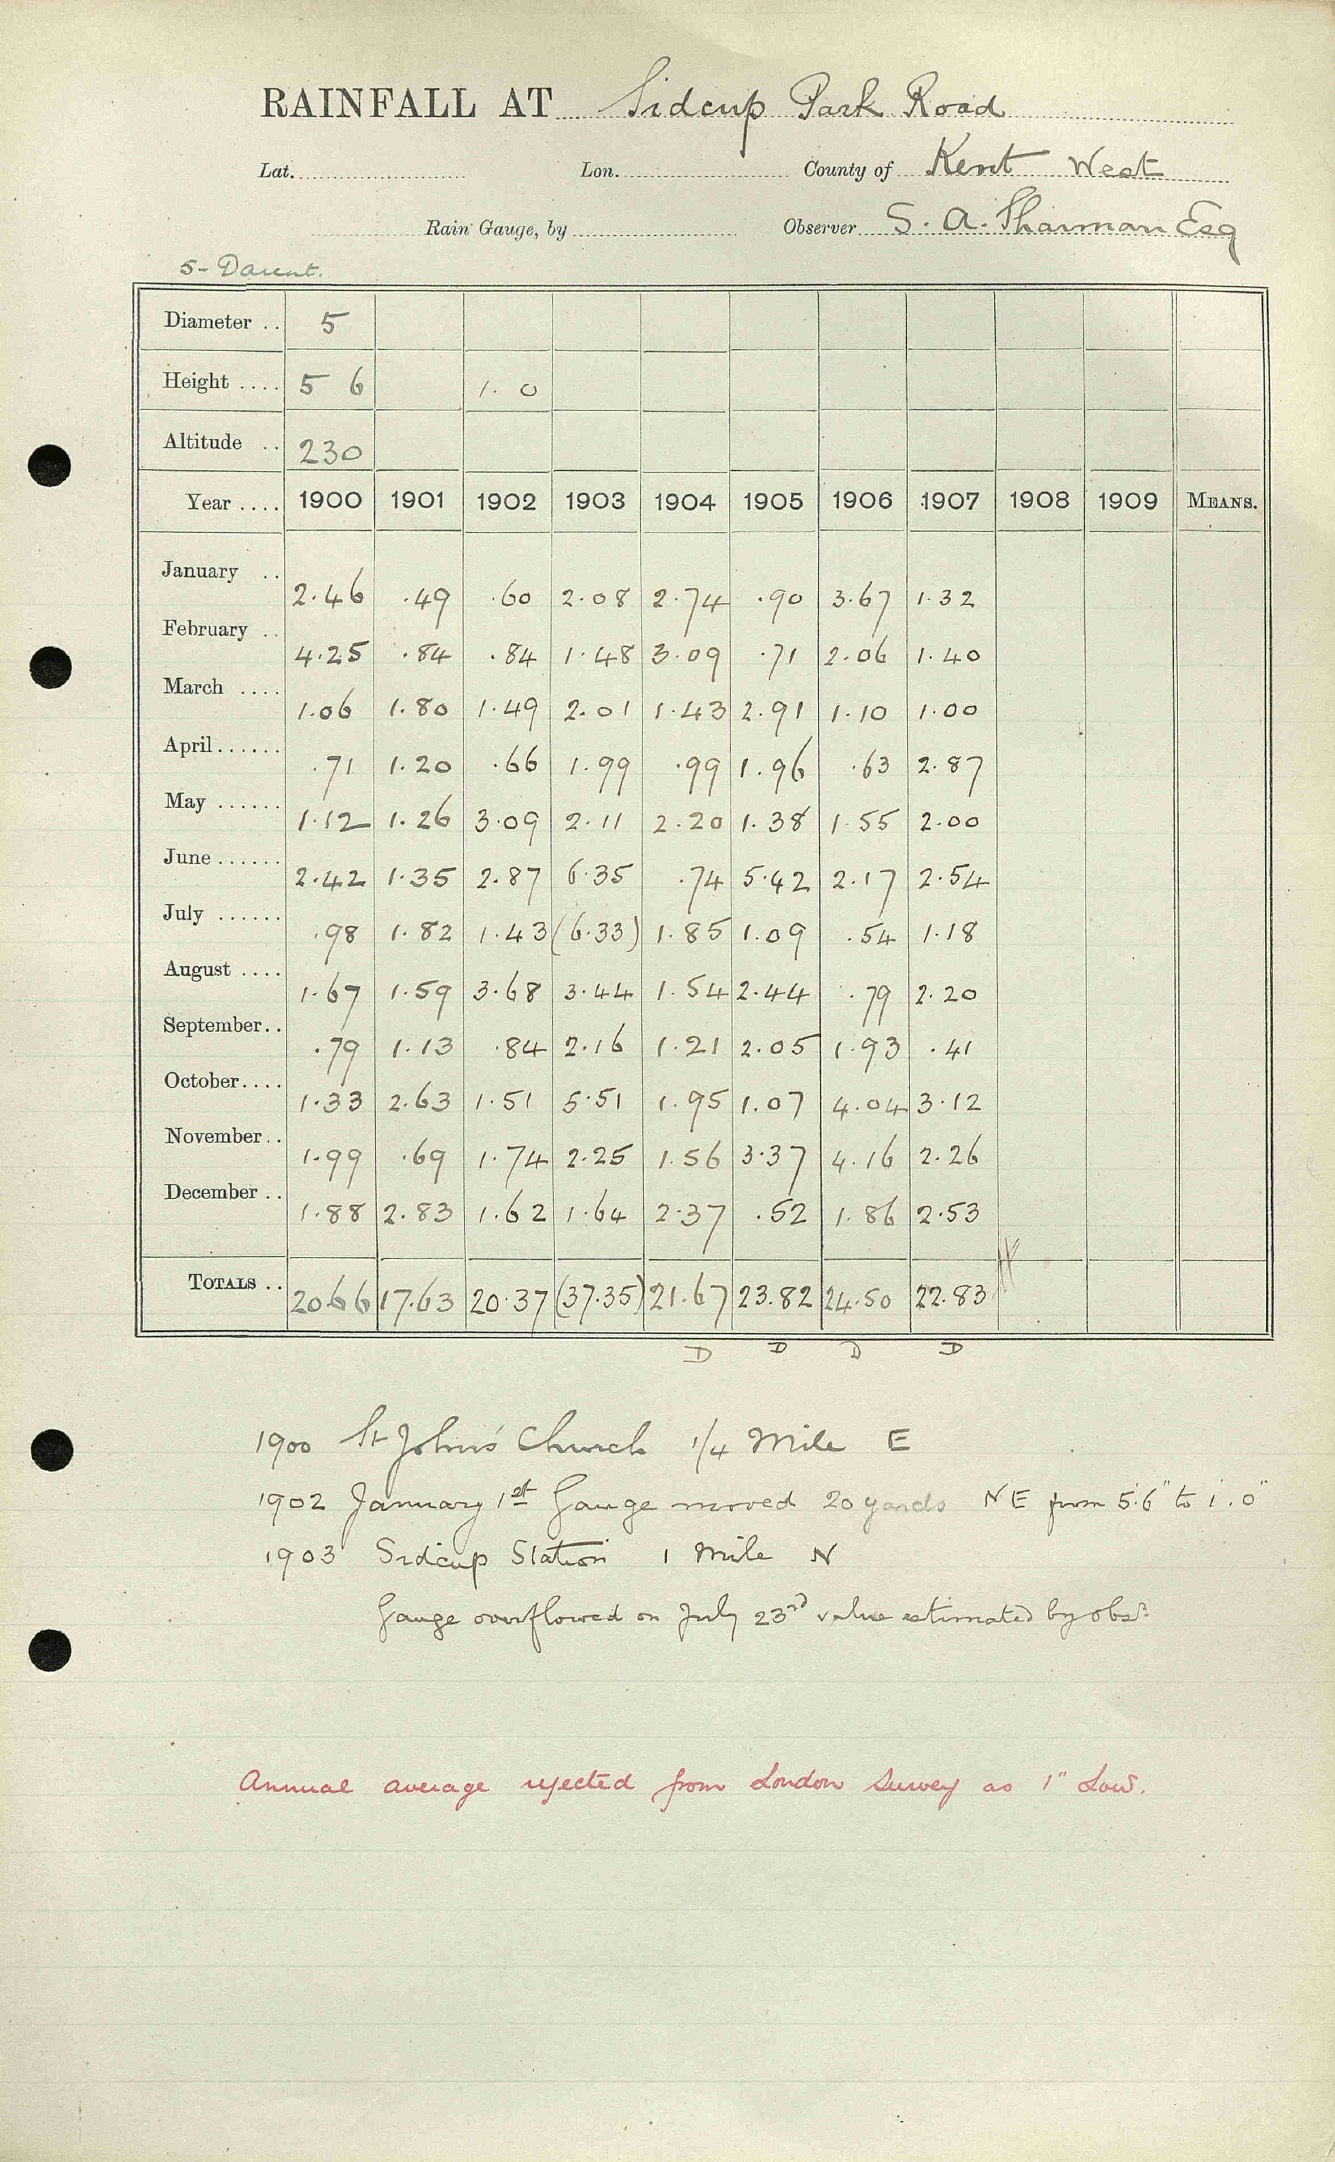 RAINFALL AT Sidcup Park Road
Lat. Lon. County of Kent West
Rain Gauge, by Observer S. A. Sharman Esq
5 - Darent.
Diameter .. 5
Height .... 5 6 1. 0
Altitude .. 230
Year .... 1900 1901 1902 1903 1904 1905 1906 1907 1908 1909 MEANS.
January .. 2.46 .49 .60 2.08 2.74 .90 3.67 1.32
February .. 4.25 .84 .84 1.48 3.09 .71 2.06 1.40
March .... 1.06 1.80 1.49 2.01 1.43 2.91 1.10 1.00
April ...... .71 1.20 .66 1.99 .99 1.96 .63 2.87
May ...... 1.12 1.26 3.09 2.11 2.20 1.38 1.55 2.00
June ...... 2.42 1.35 2.87 6.35 .74 5.42 2.17 2.54
July ...... .98 1.82 1.43 (6.33) 1.85 1.09 .54 1.18
August .... 1.67 1.59 3.68 3.44 1.54 2.44 .79 2.20
September.. .79 1.13 .84 2.16 1.21 2.05 1.93 .41
October.... 1.33 2.63 1.51 5.51 1.95 1.07 4.04 3.12
November.. 1.99 .69 1.74 2.25 1.56 3.37 4.16 2.26
December .. 1.88 2.83 1.62 1.64 2.37 .52 1.86 2.53
TOTALS .. 20.66 17.63 20.37 (37.35) 21.67 23.82 24.50 22.83
D D D D
1900 St John's Church 1/4 Mile E
1902 January 1st Gauge moved 20 yards NE from 5.6" to 1.0"
1903 Sidcup Station 1 Mile N
Gauge overflowed on July 23rd value estimated by obsr.
Annual average rejected from London Survey as 1" Low.